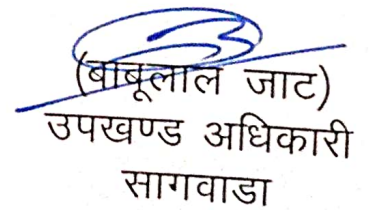 (बाबूलाल जाट)
उपखण्ड अधिकारी
सागवाडा